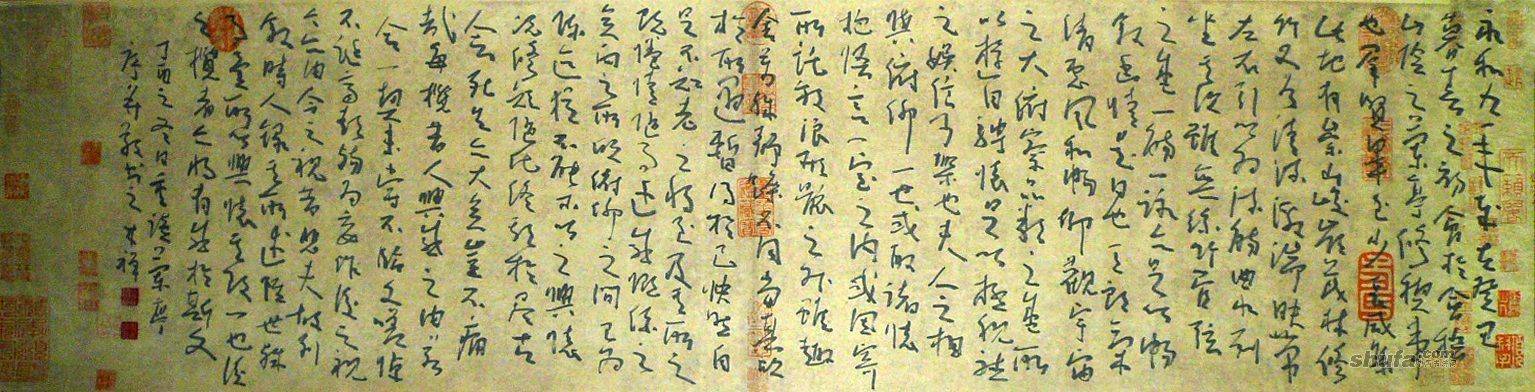 永和九年歲在癸丑
暮春之初會於會稽
山陰之蘭亭修稧事
也群賢畢至少長咸集
此地有崇山峻嶺茂林脩
竹又有清流激湍映帶
左右引以為流觴曲水列
坐其次雖無絲竹管弦
之盛一觴一詠亦足以暢
敘幽情是日也天朗氣
清惠風和暢仰觀宇宙
之大俯察品類之盛所
以遊目騁懷足以極視聽
之娛信可樂也夫人之相
與俯仰一世或取諸懷
抱悟言一室之內或因寄
所託放浪形骸之外雖趣
舍萬殊靜躁不同當其欣
於所遇暫得於己快然自
足不知老之將至及其所之
既惓情隨事遷感慨係之
矣向之所欣俯仰之間已為
陳迹猶不能不以之興懷
況脩短隨化終期於盡古
人云死生亦大矣豈不痛
哉每攬昔人興感之由若
合一契未嘗不臨文嗟悼
不誕齊彭殤為妄作後之視
今亦由今之視昔悲夫故列
敘時人錄其所述雖世殊
事異所以興懷其致一也後
之攬者亦將有感於斯文
之冬日重讀蘭亭
序并書之
shufa.com